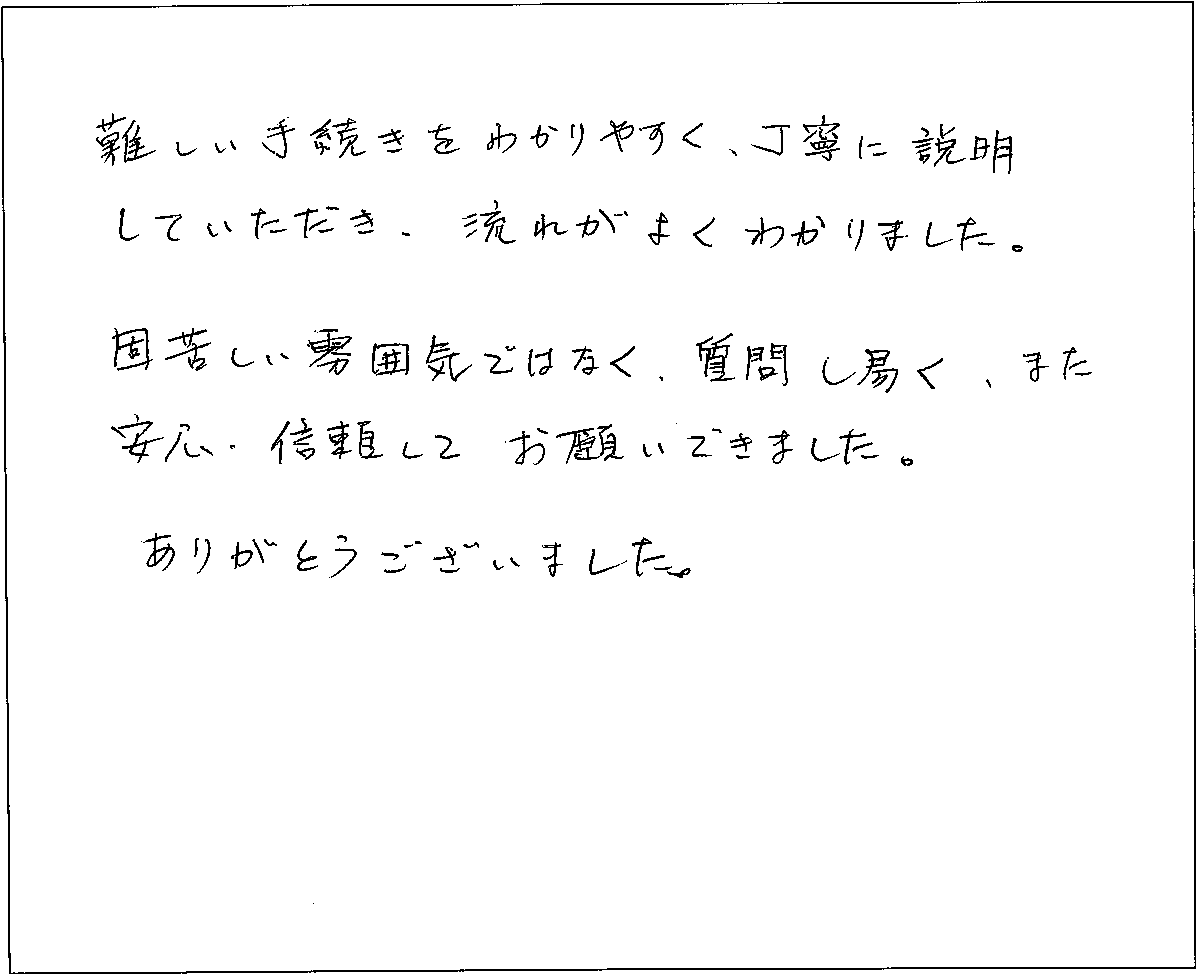 難しい手続きをわかりやすく、丁寧に説明
していただき、流れがよくわかりました。
固苦しい雰囲気ではなく、質問し易く、また
安心・信頼して お願いできました。
ありがとうございました。